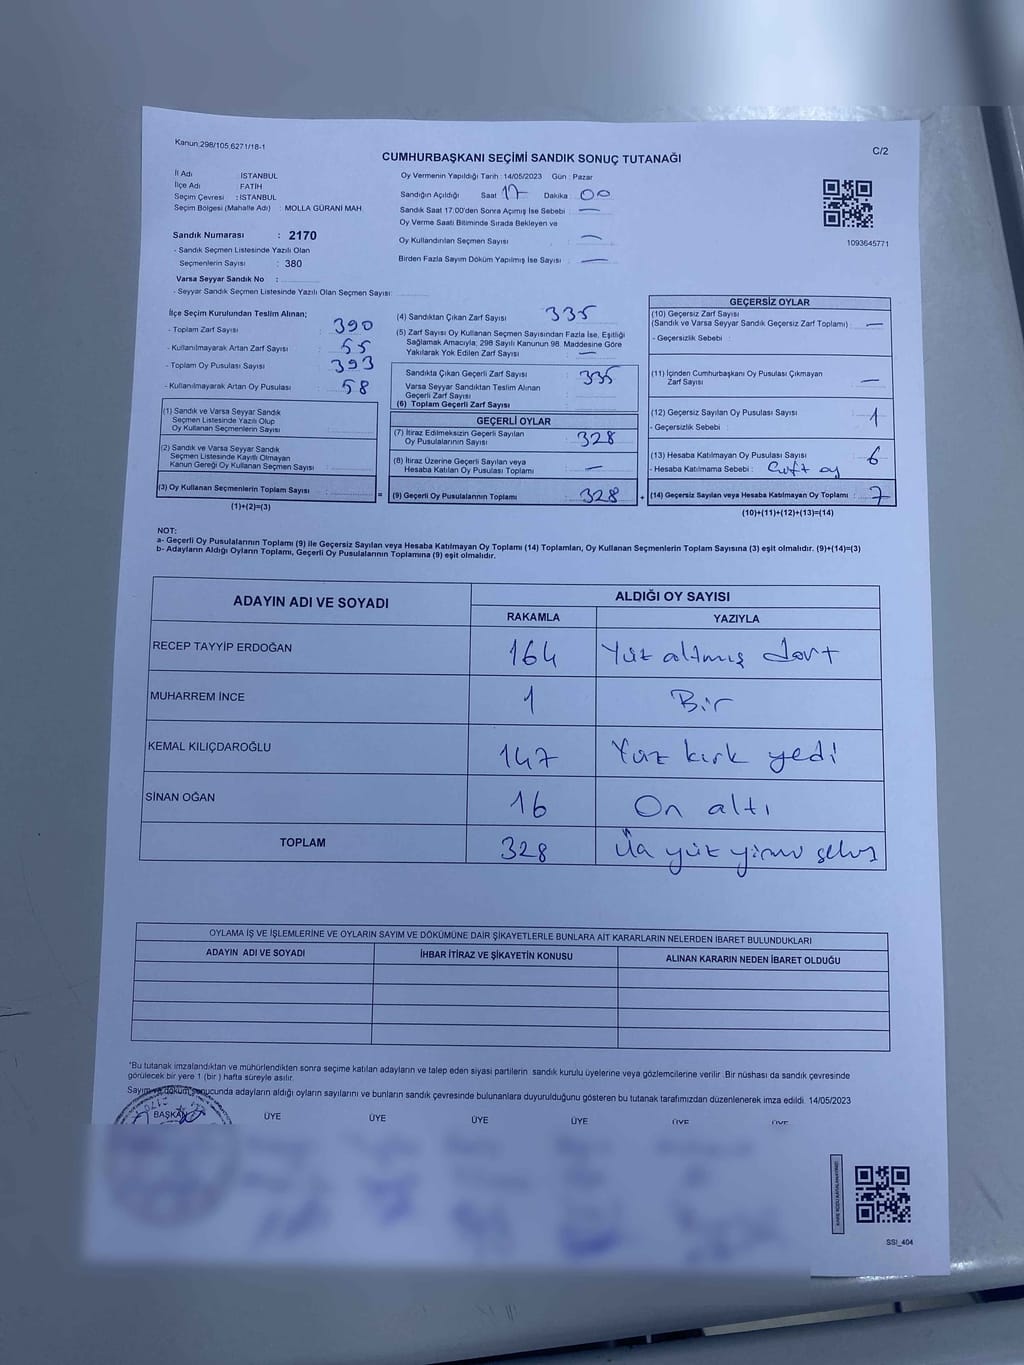 Kanun:298/105,6271/18-1
C/2
CUMHURBAŞKANI SEÇİMİ SANDIK SONUÇ TUTANAĞI
İl Adı : İSTANBUL
İlçe Adı : FATİH
Seçim Çevresi : İSTANBUL
Seçim Bölgesi (Mahalle Adı) : MOLLA GÜRANİ MAH.
Sandık Numarası : 2170
- Sandık Seçmen Listesinde Yazılı Olan
Seçmenlerin Sayısı : 380
Varsa Seyyar Sandık No :
- Seyyar Sandık Seçmen Listesinde Yazılı Olan Seçmen Sayısı:
Oy Vermenin Yapıldığı Tarih : 14/05/2023 Gün : Pazar
Sandığın Açıldığı Saat 17 Dakika : 00
Sandık Saat 17:00'den Sonra Açımış İse Sebebi : —
Oy Verme Saati Bitiminde Sırada Bekleyen ve
Oy Kullandırılan Seçmen Sayısı : —
Birden Fazla Sayım Döküm Yapılmış İse Sayısı : —
1093645771
İlçe Seçim Kurulundan Teslim Alınan;
- Toplam Zarf Sayısı : 390
- Kullanılmayarak Artan Zarf Sayısı : 55
- Toplam Oy Pusulası Sayısı : 393
- Kullanılmayarak Artan Oy Pusulası : 58
(1) Sandık ve Varsa Seyyar Sandık
Seçmen Listesinde Yazılı Olup
Oy Kullanan Seçmenlerin Sayısı :
(2) Sandık ve Varsa Seyyar Sandık
Seçmen Listesinde Kayıtlı Olmayan
Kanun Gereği Oy Kullanan Seçmen Sayısı :
(3) Oy Kullanan Seçmenlerin Toplam Sayısı : =
(1)+(2)=(3)
(4) Sandıktan Çıkan Zarf Sayısı : 335
(5) Zarf Sayısı Oy Kullanan Seçmen Sayısından Fazla İse, Eşitliği
Sağlamak Amacıyla; 298 Sayılı Kanunun 98. Maddesine Göre
Yakılarak Yok Edilen Zarf Sayısı : —
Sandıkta Çıkan Geçerli Zarf Sayısı : 335
Varsa Seyyar Sandıktan Teslim Alınan
Geçerli Zarf Sayısı :
(6) Toplam Geçerli Zarf Sayısı :
GEÇERLİ OYLAR
(7) İtiraz Edilmeksizin Geçerli Sayılan
Oy Pusulalarının Sayısı : 328
(8) İtiraz Üzerine Geçerli Sayılan veya
Hesaba Katılan Oy Pusulası Toplamı : —
(9) Geçerli Oy Pusulalarının Toplamı : 328 +
GEÇERSİZ OYLAR
(10) Geçersiz Zarf Sayısı
(Sandık ve Varsa Seyyar Sandık Geçersiz Zarf Toplamı) : —
- Geçersizlik Sebebi :
(11) İçinden Cumhurbaşkanı Oy Pusulası Çıkmayan
Zarf Sayısı : —
(12) Geçersiz Sayılan Oy Pusulası Sayısı : 1
- Geçersizlik Sebebi :
(13) Hesaba Katılmayan Oy Pusulası Sayısı : 6
- Hesaba Katılmama Sebebi : Çift oy
(14) Geçersiz Sayılan veya Hesaba Katılmayan Oy Toplamı : 7
(10)+(11)+(12)+(13)=(14)
NOT:
a- Geçerli Oy Pusulalarının Toplamı (9) ile Geçersiz Sayılan veya Hesaba Katılmayan Oy Toplamı (14) Toplamları, Oy Kullanan Seçmenlerin Toplam Sayısına (3) eşit olmalıdır. (9)+(14)=(3)
b- Adayların Aldığı Oyların Toplamı, Geçerli Oy Pusulalarının Toplamına (9) eşit olmalıdır.
ADAYIN ADI VE SOYADI ALDIĞI OY SAYISI
RAKAMLA YAZIYLA
RECEP TAYYİP ERDOĞAN 164 Yüz altmış dört
MUHARREM İNCE 1 Bir
KEMAL KILIÇDAROĞLU 147 Yüz kırk yedi
SİNAN OĞAN 16 On altı
TOPLAM 328 Üç yüz yirmi sekiz
OYLAMA İŞ VE İŞLEMLERİNE VE OYLARIN SAYIM VE DÖKÜMÜNE DAİR ŞİKAYETLERLE BUNLARA AİT KARARLARIN NELERDEN İBARET BULUNDUKLARI
ADAYIN ADI VE SOYADI İHBAR İTİRAZ VE ŞİKAYETİN KONUSU ALINAN KARARIN NEDEN İBARET OLDUĞU
*Bu tutanak imzalandıktan ve mühürlendikten sonra seçime katılan adayların ve talep eden siyasi partilerin sandık kurulu üyelerine veya gözlemcilerine verilir. Bir nüshası da sandık çevresinde
görülecek bir yere 1 (bir ) hafta süreyle asılır.
Sayım ve döküm sonucunda adayların aldığı oyların sayılarını ve bunların sandık çevresinde bulunanlara duyurulduğunu gösteren bu tutanak tarafımızdan düzenlenerek imza edildi. 14/05/2023
BAŞKAN ÜYE ÜYE ÜYE ÜYE ÜYE ÜYE
SSI_404